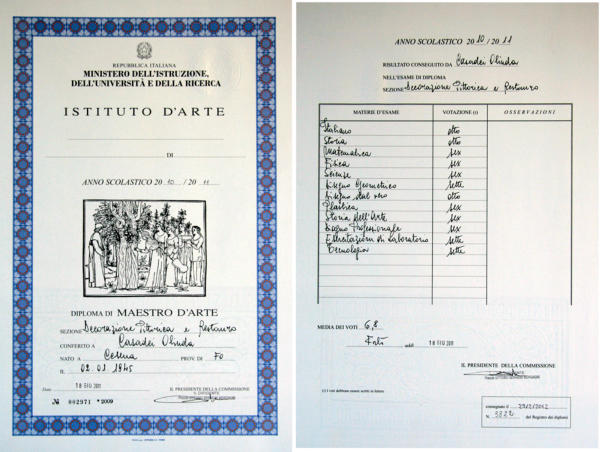 REPUBBLICA ITALIANA
MINISTERO DELL'ISTRUZIONE,
DELL'UNIVERSITÀ E DELLA RICERCA
ISTITUTO D'ARTE
DI
ANNO SCOLASTICO 20 10 / 20 11
DIPLOMA DI MAESTRO D'ARTE
SEZIONE Decorazione Pittorica e Restauro
CONFERITO A Casadei Olinda
NATO A Cesena PROV. DI FO
IL 02.01.1945
Data 18 GIU 2011
IL PRESIDENTE DELLA COMMISSIONE
IL DIRIGENTE
№ 002971 * 2009
ANNO SCOLASTICO 20 10 / 20 11
RISULTATO CONSEGUITO DA Casadei Olinda
NELL'ESAME DI DIPLOMA
SEZIONE Decorazione Pittorica e Restauro
MATERIE D'ESAME VOTAZIONE (1) OSSERVAZIONI
Italiano otto
Storia otto
Matematica sex
Fisica sex
Scienze sex
Disegno Geometrico sette
Disegno dal vero otto
Plastica sex
Storia dell'Arte sex
Disegno Professionale sex
Esercitazioni di Laboratorio sette
Tecnologia sette
MEDIA DEI VOTI 6,8
Forlì addì 18 GIU 2011
IL PRESIDENTE DELLA COMMISSIONE
(1) I voti debbono essere scritti in lettere
consegnato il 29/2/2012
N. 3822 del Registro dei diplomi